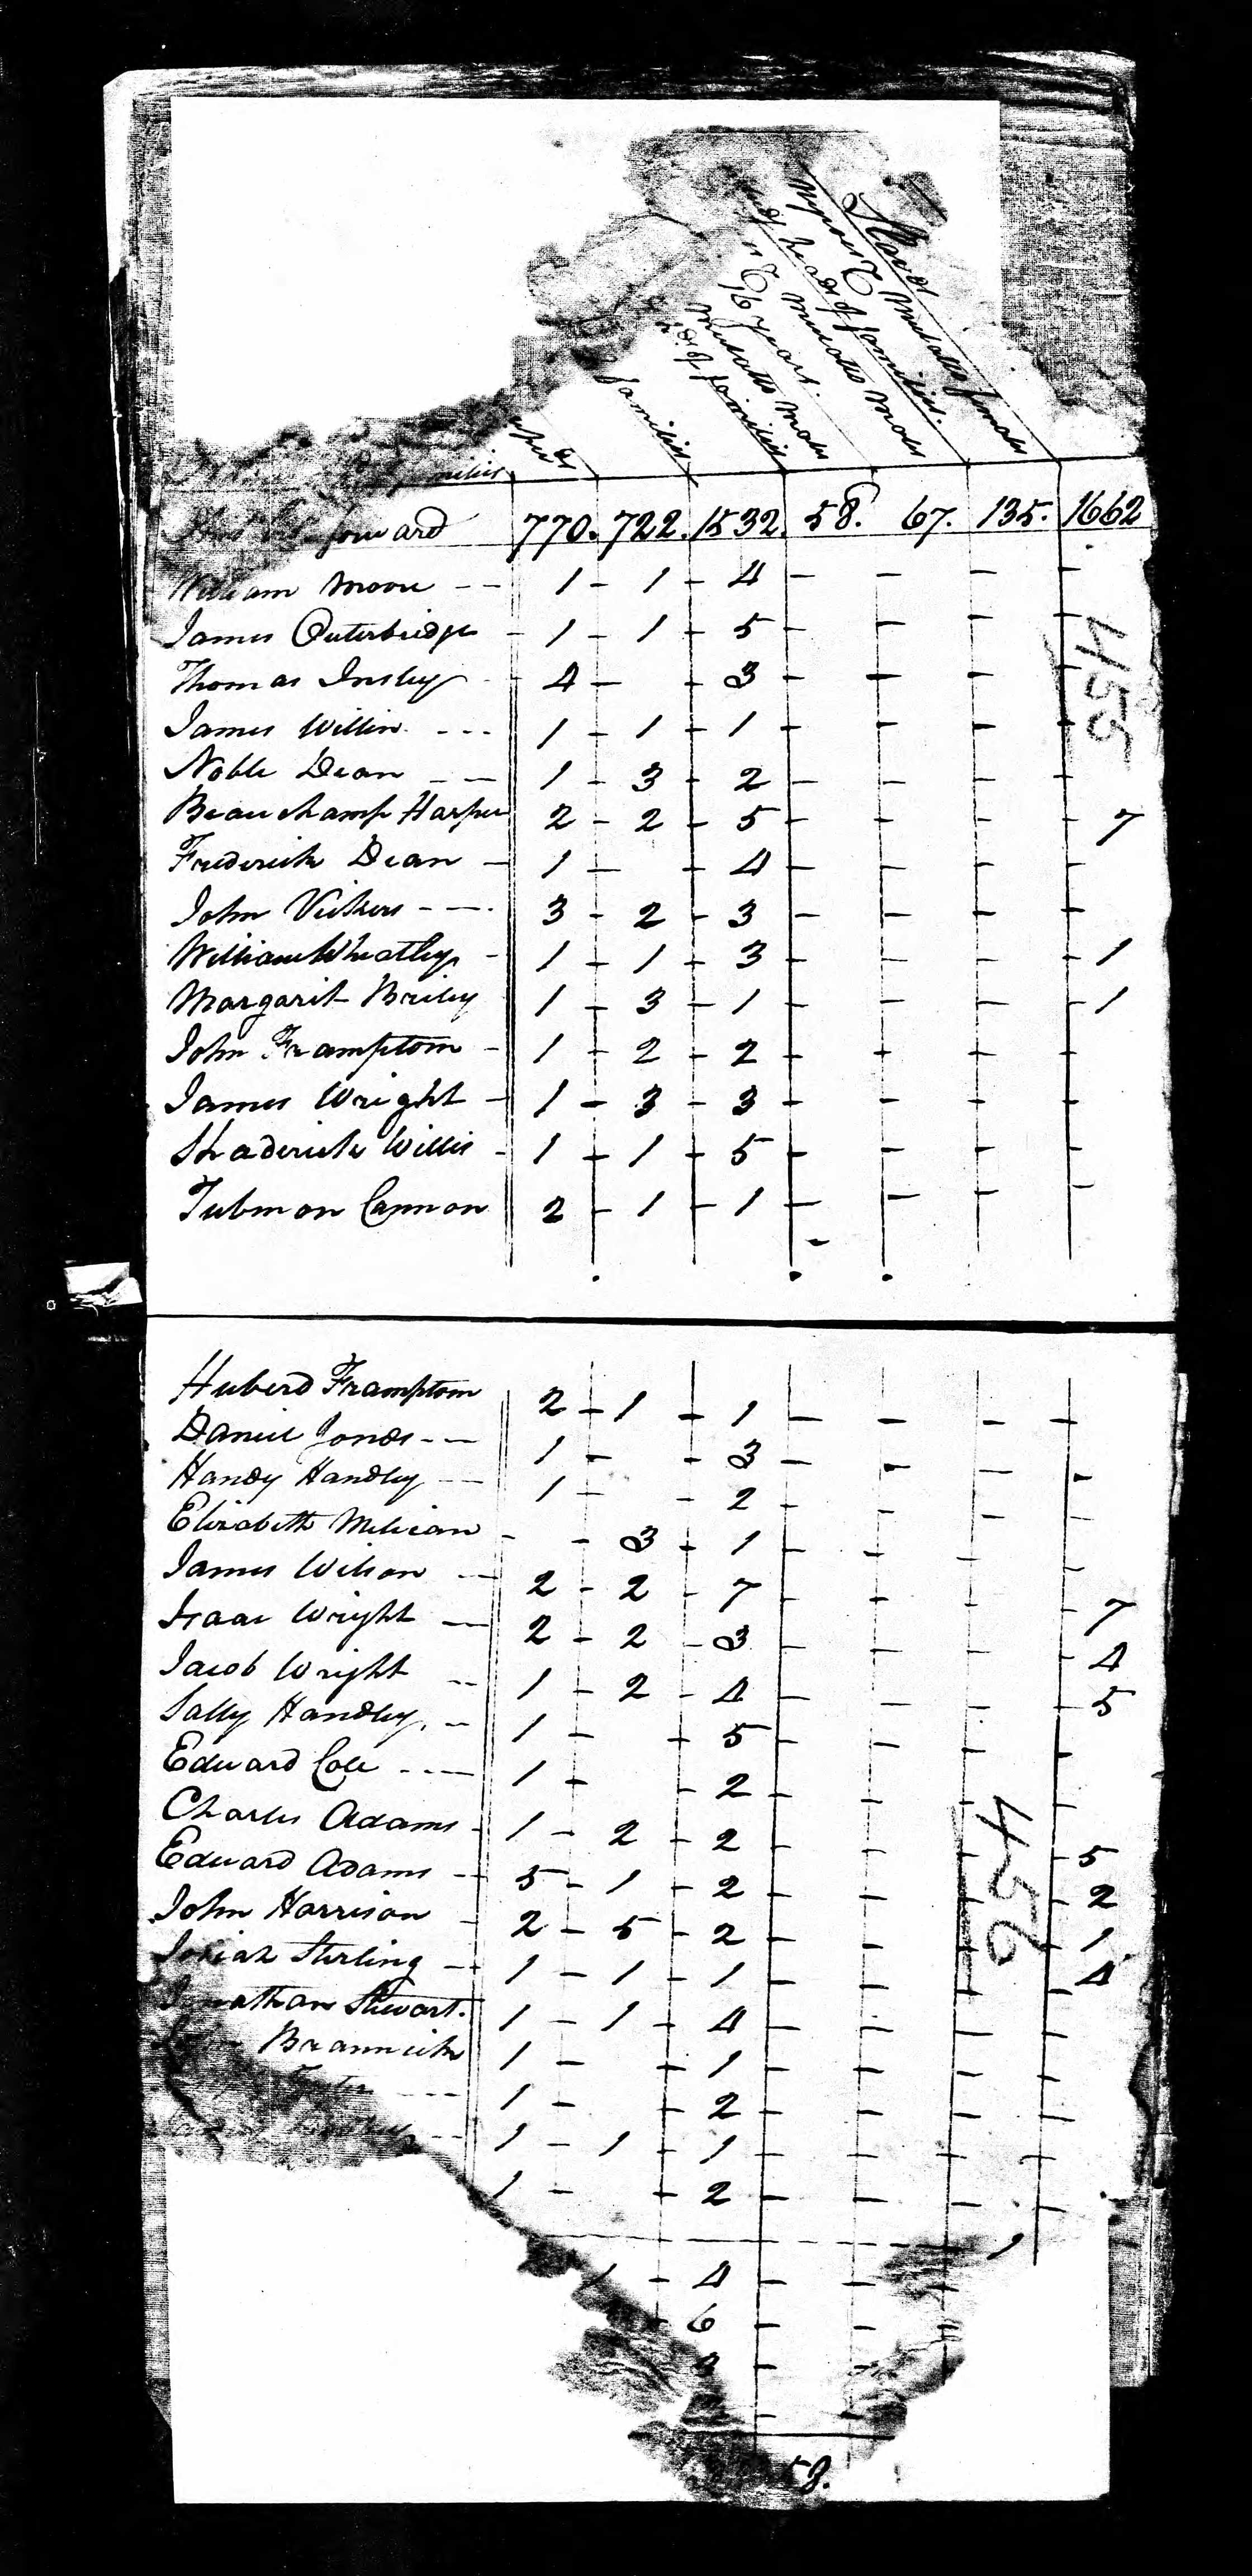 Slaves
Negroe & Mulatto females
heads of families.
or Mulatto Males
16 years.
Mulatto Males
hds. of families
families
families
forward 770. 722. 1532. 58. 67. 135. 1662
William Moore -- 1 - 1 - 4 - - - -
James Outerbridge - 1 - 1 - 5 - - - -
Thomas Insley - 4 - - 3 - - - -
James Willin --- 1 - 1 - 1 - - - -
Noble Dean -- 1 - 3 - 2 - - - -
Beauchamp Harper 2 - 2 - 5 - - - - 7
Frederick Dean - 1 - - 4 - - - -
John Vickers --- 3 - 2 - 3 - - - -
William Wheatley - 1 - 1 - 3 - - - - 1
Margarit Briley 1 - 3 - 1 - - - - 1
John Framptom - 1 - 2 - 2 - - - -
James Wright - 1 - 3 - 3 - - - -
Shaderick Willis - 1 - 1 - 5 - - - -
Tubman Cannon 2 - 1 - 1 - - - -
455
Huberd Framptom 2 - 1 - 1 - - - -
Daniel Jones -- 1 - - 3 - - - -
Handy Handley -- 1 - - 2 - - - -
Elizabeth - - 3 - 1 - - - -
James Wilson -- 2 - 2 - 7 - - - - 7
Isaac Wright -- 2 - 2 - 3 - - - - 4
Jacob Wright -- 1 - 2 - 4 - - - - 5
Sally Handley. - 1 - - 5 - - - -
Edward Cole --- 1 - - 2 - - - -
Charles Adams - 1 - 2 - 2 - - - - 5
Edward Adams - 5 - 1 - 2 - - - - 2
John Harrison - 2 - 5 - 2 - - - - 1
Josiah Sterling - 1 - 1 - 1 - - - - 4
Jonathan Stewart. 1 - 1 - 4 - - - -
Brannick 1 - - 1 - - - -
--- 1 - - 2 - - - -
-- 1 - 1 - 1 - - - -
1 - - 2 - - - -
1
1 - 4 - - -
6 - - -
3 - -
58.
456